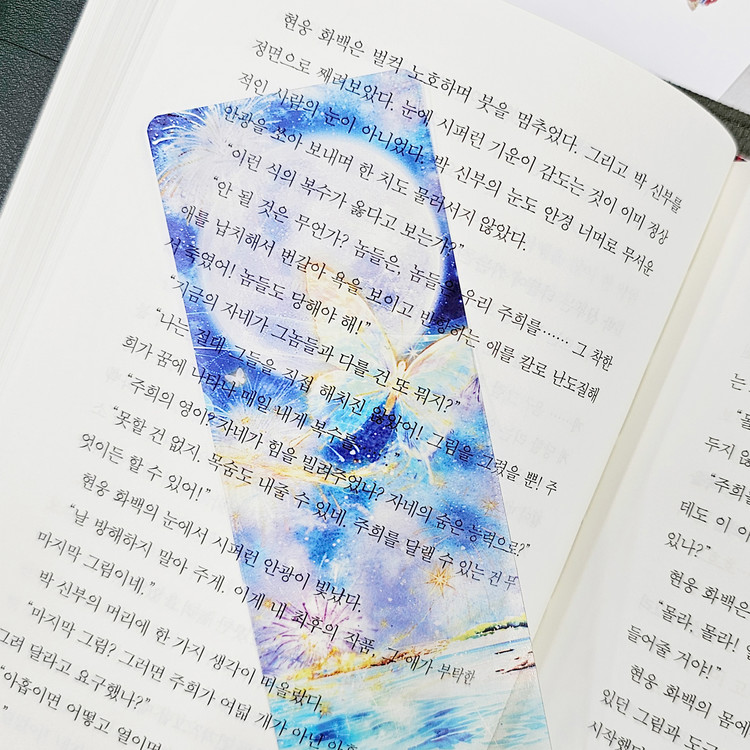 현웅 화백은 벌컥 노호하며 붓을 멈추었다. 그리고 박 신부를
정면으로 째려보았다. 눈에 시퍼런 기운이 감도는 것이 이미 정상
적인 사람의 눈이 아니었다. 박 신부의 눈도 안경 너머로 무서운
안광을 쏘아 보내며 한 치도 물러서지 않았다.
“이런 식의 복수가 옳다고 보는가?”
“안 될 것은 무언가? 놈들은, 놈들은 우리 주희를…… 그 착한
애를 납치해서 번갈아 욕을 보이고 반항하는 애를 칼로 난도질해
서 죽였어! 놈들도 당해야 해!”
“지금의 자네가 그놈들과 다를 건 또 뭐지?”
“나는 절대 그들을 직접 해치진 않았어! 그림을 그렸을 뿐! 주
희가 꿈에 나타나 매일 내게 복수를
“주희의 영이? 자네가 힘을 빌려주었나? 자네의 숨은 능력으로?”
“못할 건 없지. 목숨도 내줄 수 있네. 주희를 달랠 수 있는 건 무
엇이든 할 수 있어!”
현웅 화백의 눈에서 시퍼런 안광이 빛났다.
“날 방해하지 말아 주게. 이게 내 최후의 작품, 그 애가 부탁한
마지막 그림이네.”
박 신부의 머리에 한 가지 생각이 떠올랐다.
“마지막 그림? 그러면 주희가 여덟 개가 아닌 아홉
그려 달라고 요구했나?”
“아홉이면 어떻고 열이면
는
두지 않
“주희
데도 이 이
있나?”
현웅 화백은
“몰라, 몰라!
들어줄 거야!”
현웅 화백의 몸에
있던 그림과 도구
시작했